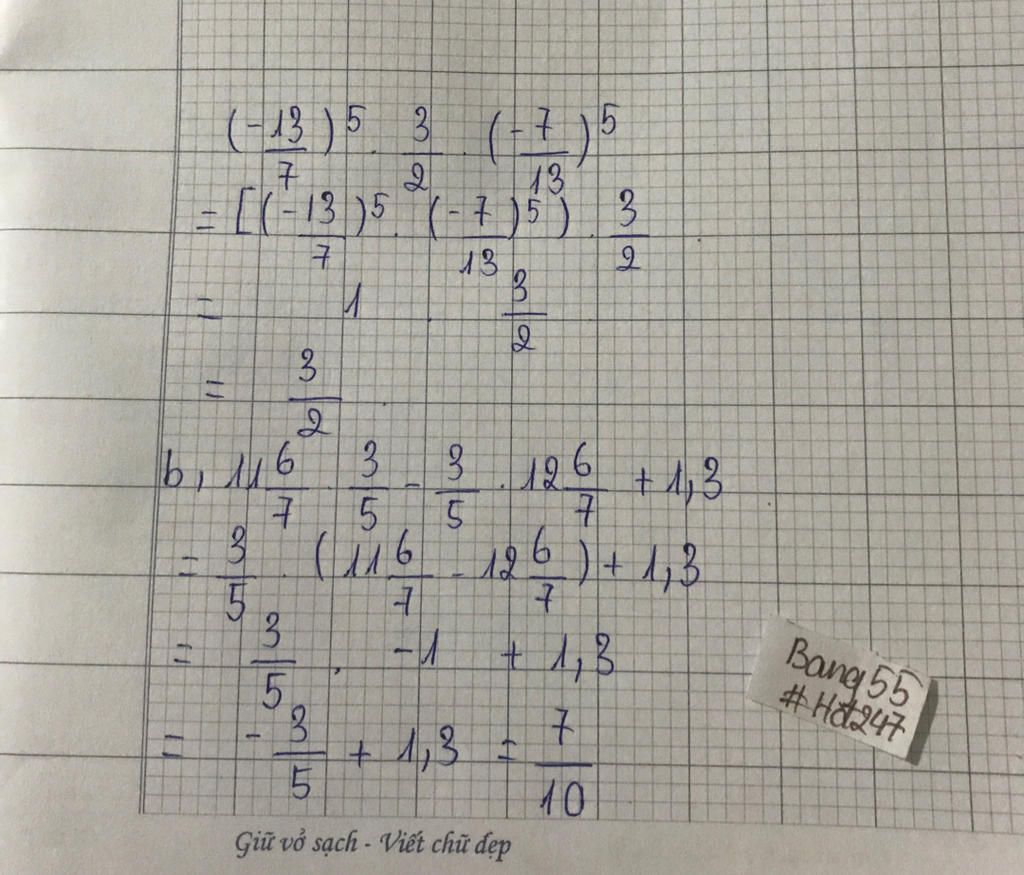 (-13/7)^5 . 3/2 . (-7/13)^5
= [(-13/7)^5 . (-7/13)^5) . 3/2
= 1 . 3/2
= 3/2 .
b, 11 6/7 . 3/5 - 3/5 . 12 6/7 + 1,3
= 3/5 . (11 6/7 - 12 6/7) + 1,3
= 3/5 . -1 + 1,3
= -3/5 + 1,3 = 7/10
Bang55
#Hđ247
Giữ vở sạch - Viết chữ đẹp